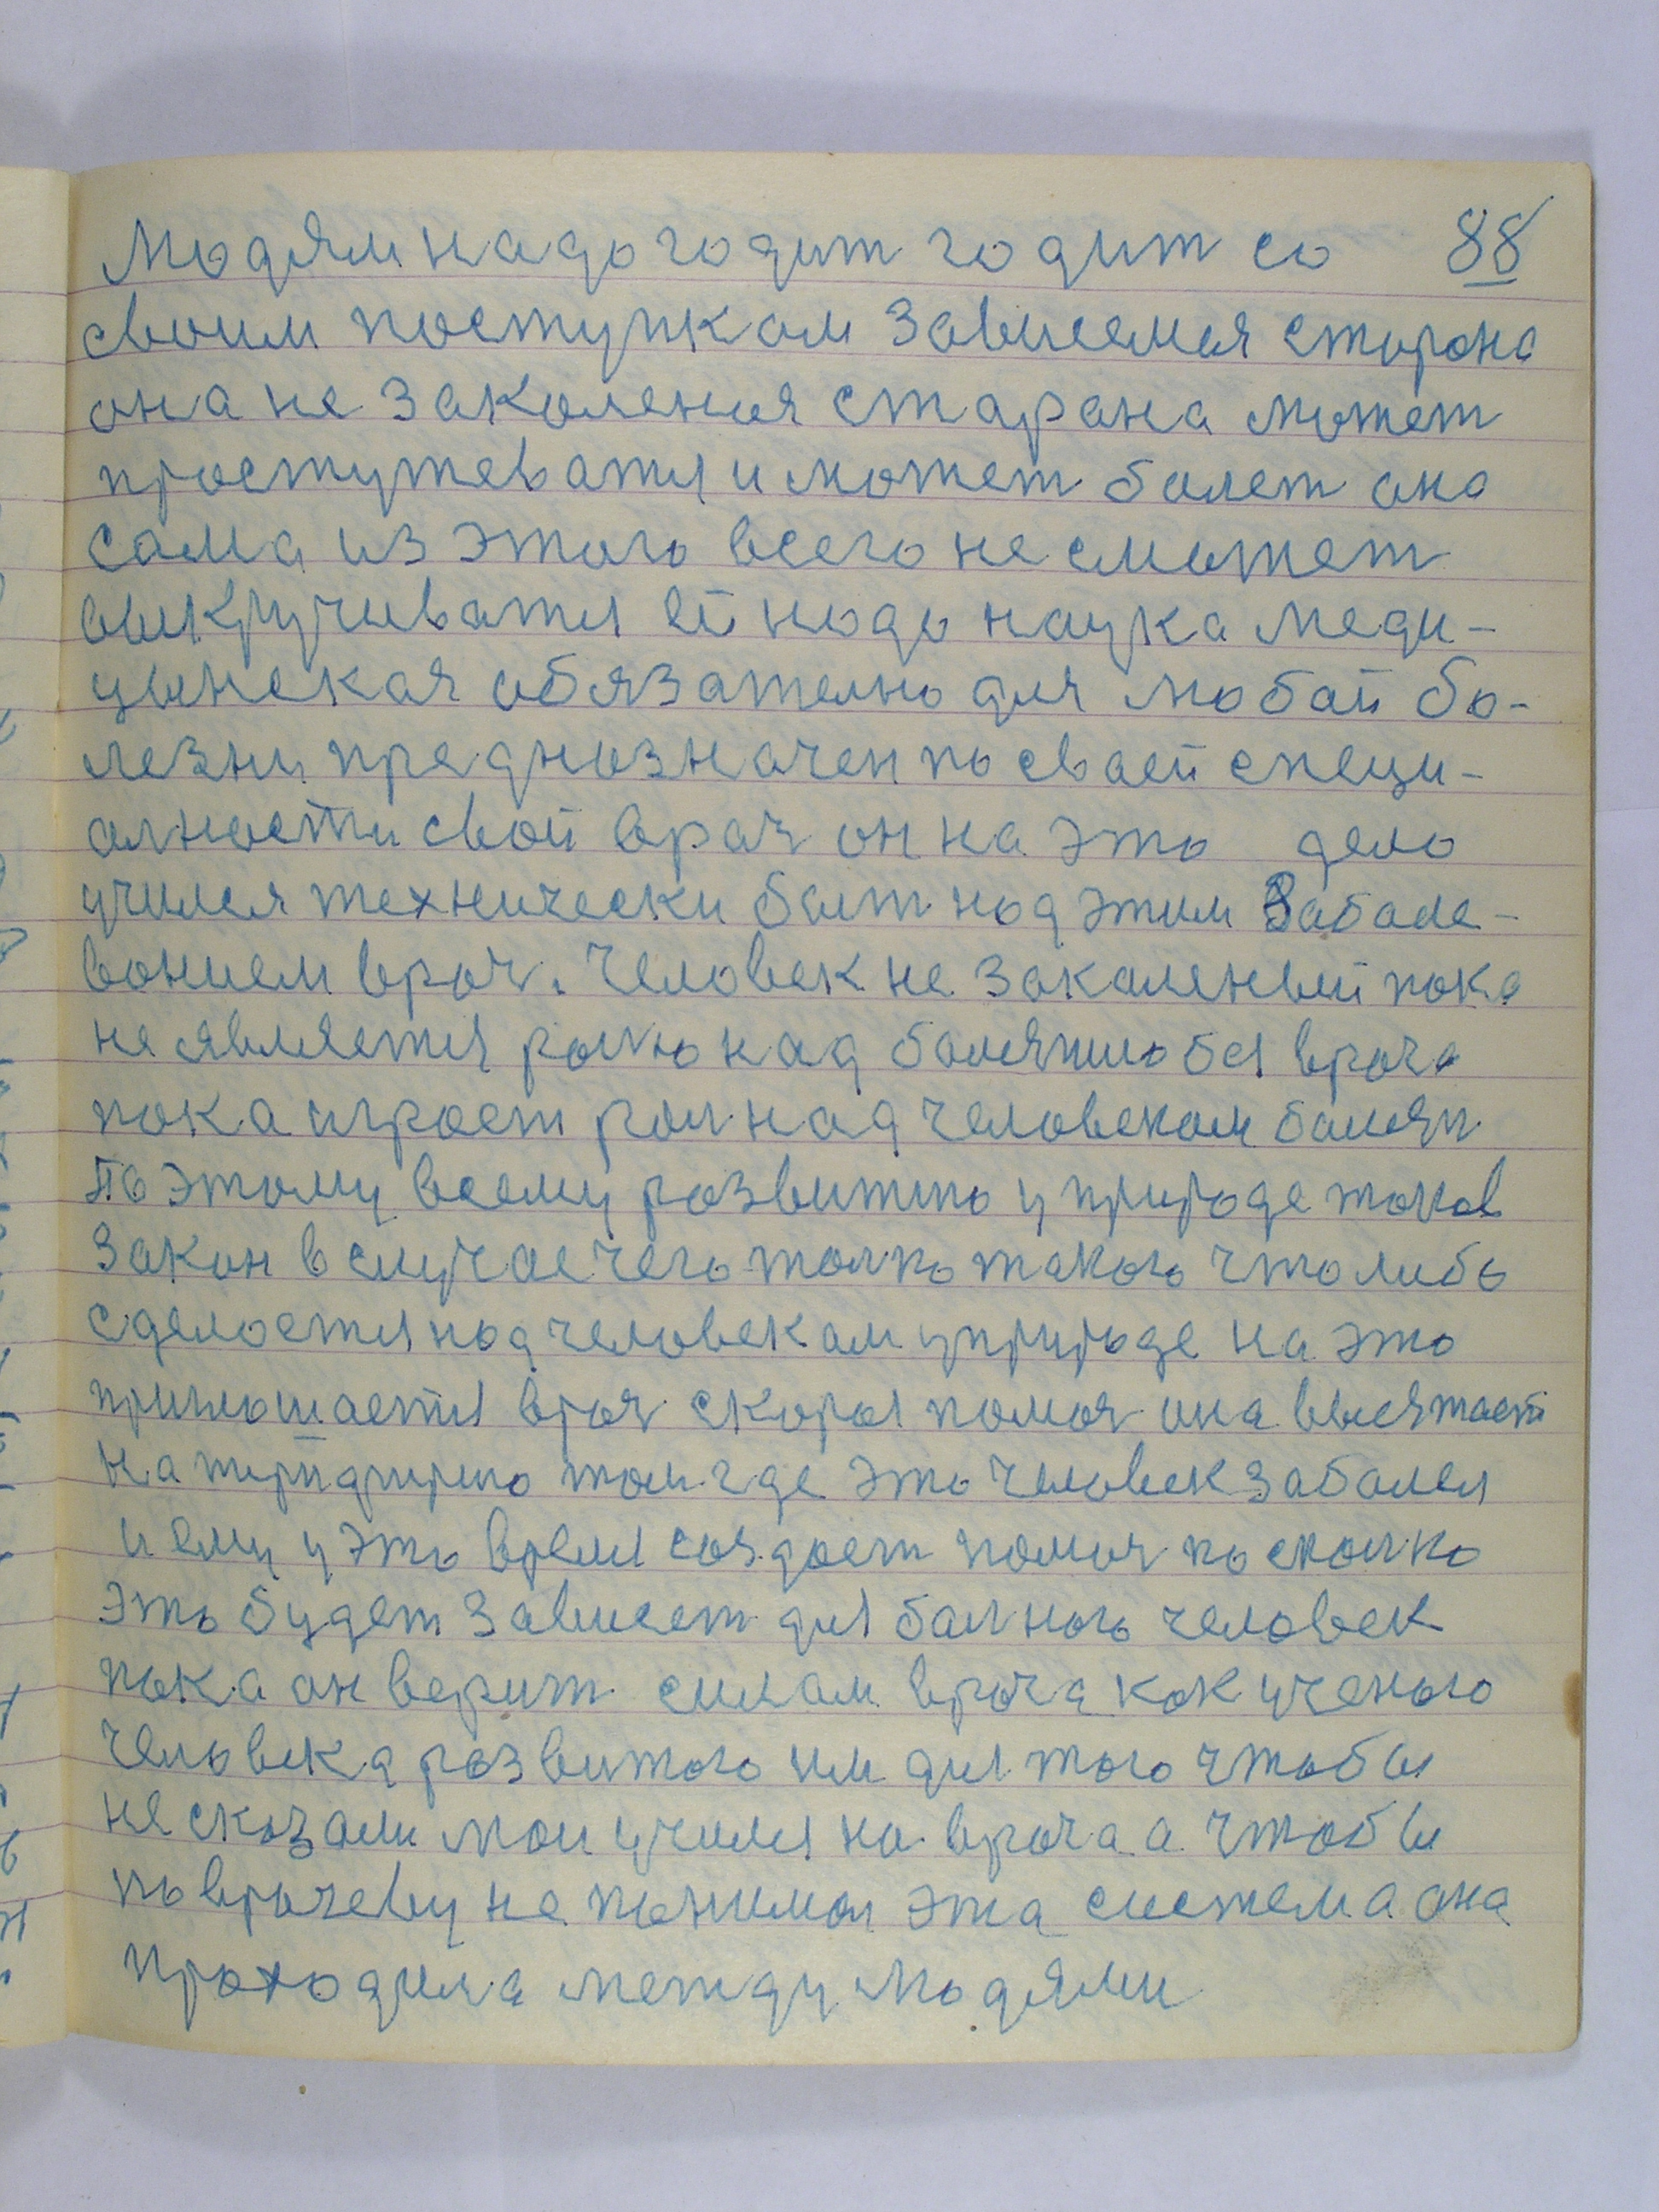 Людям надо годит годит со 88
своим поступкам зависемая сторона
она не закаленая старана может
простужеватя и может балет она
сама из этого всего не сможет
выкручиватя ей надо наука меди-
цынская обязателно для любай бо-
лезни предназначен по сваей специ-
алности свой врач он на это дело
училея технически быт над этим Забале-
ванием врач. Человек не закаленый пока
не является ролю над болячию без врача
пока играет рол над человекам боляч
По этому всему развитию у природе таков
закон в случае чего толко такого что либо
сделается над человекам у природе на это
приглошается врач скорая помоч она выежает
на террторию там где это человек забалел
и ему у это время создает помоч посколко
это будет зависет для балного человек
пока он верит силам врача как ученого
человека развитого им для того чтобы
не сказали мол училя на врача а чтобы
поврачеву не понимал эта система она
проходила между людями